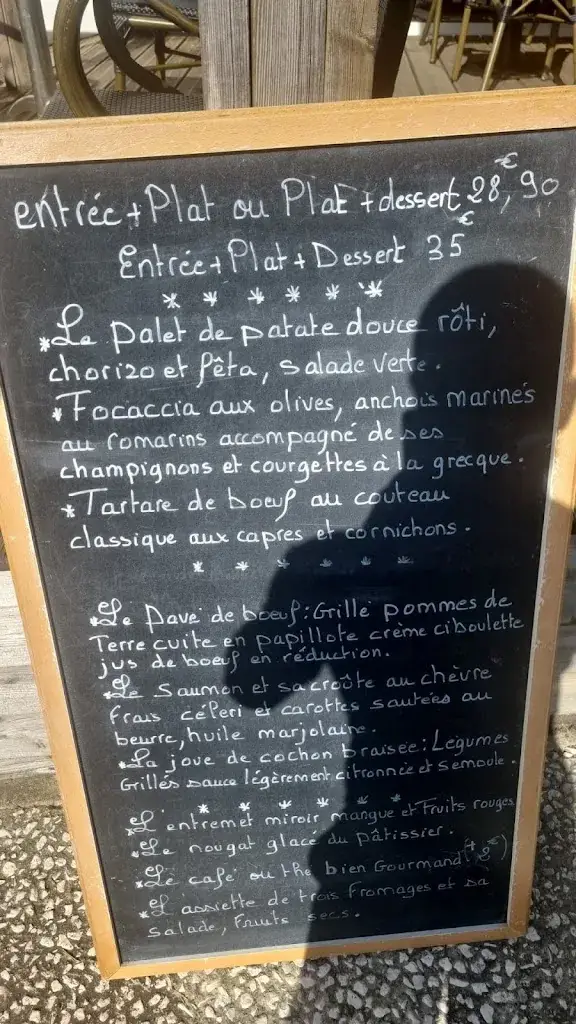 entrée + Plat ou Plat + dessert 28,€90
Entrée + Plat + Dessert 35€
* * * * * *
* Le palet de patate douce rôti,
chorizo et fêta, salade verte.
* Focaccia aux olives, anchois marinés
au romarins accompagné de ses
champignons et courgettes à la grecque.
* Tartare de boeuf au couteau
classique aux capres et cornichons.
* * * * *
* Le Pavé de boeuf: Grillé pommes de
Terre cuite en papillote crème ciboulette
jus de boeuf en réduction.
* Le Saumon et sa croûte au chèvre
frais céleri et carottes sautées au
beurre, huile marjolaine.
* La joue de cochon braisée: Légumes
Grillés sauce légèrement citronnée et semoule.
* * * * * *
* L'entremet miroir mangue et Fruits rouges
* Le nougat glacé du pâtissier.
* Le café ou thé bien Gourmand (+2€)
* L'assiette de trois fromages et sa
salade, Fruits secs.